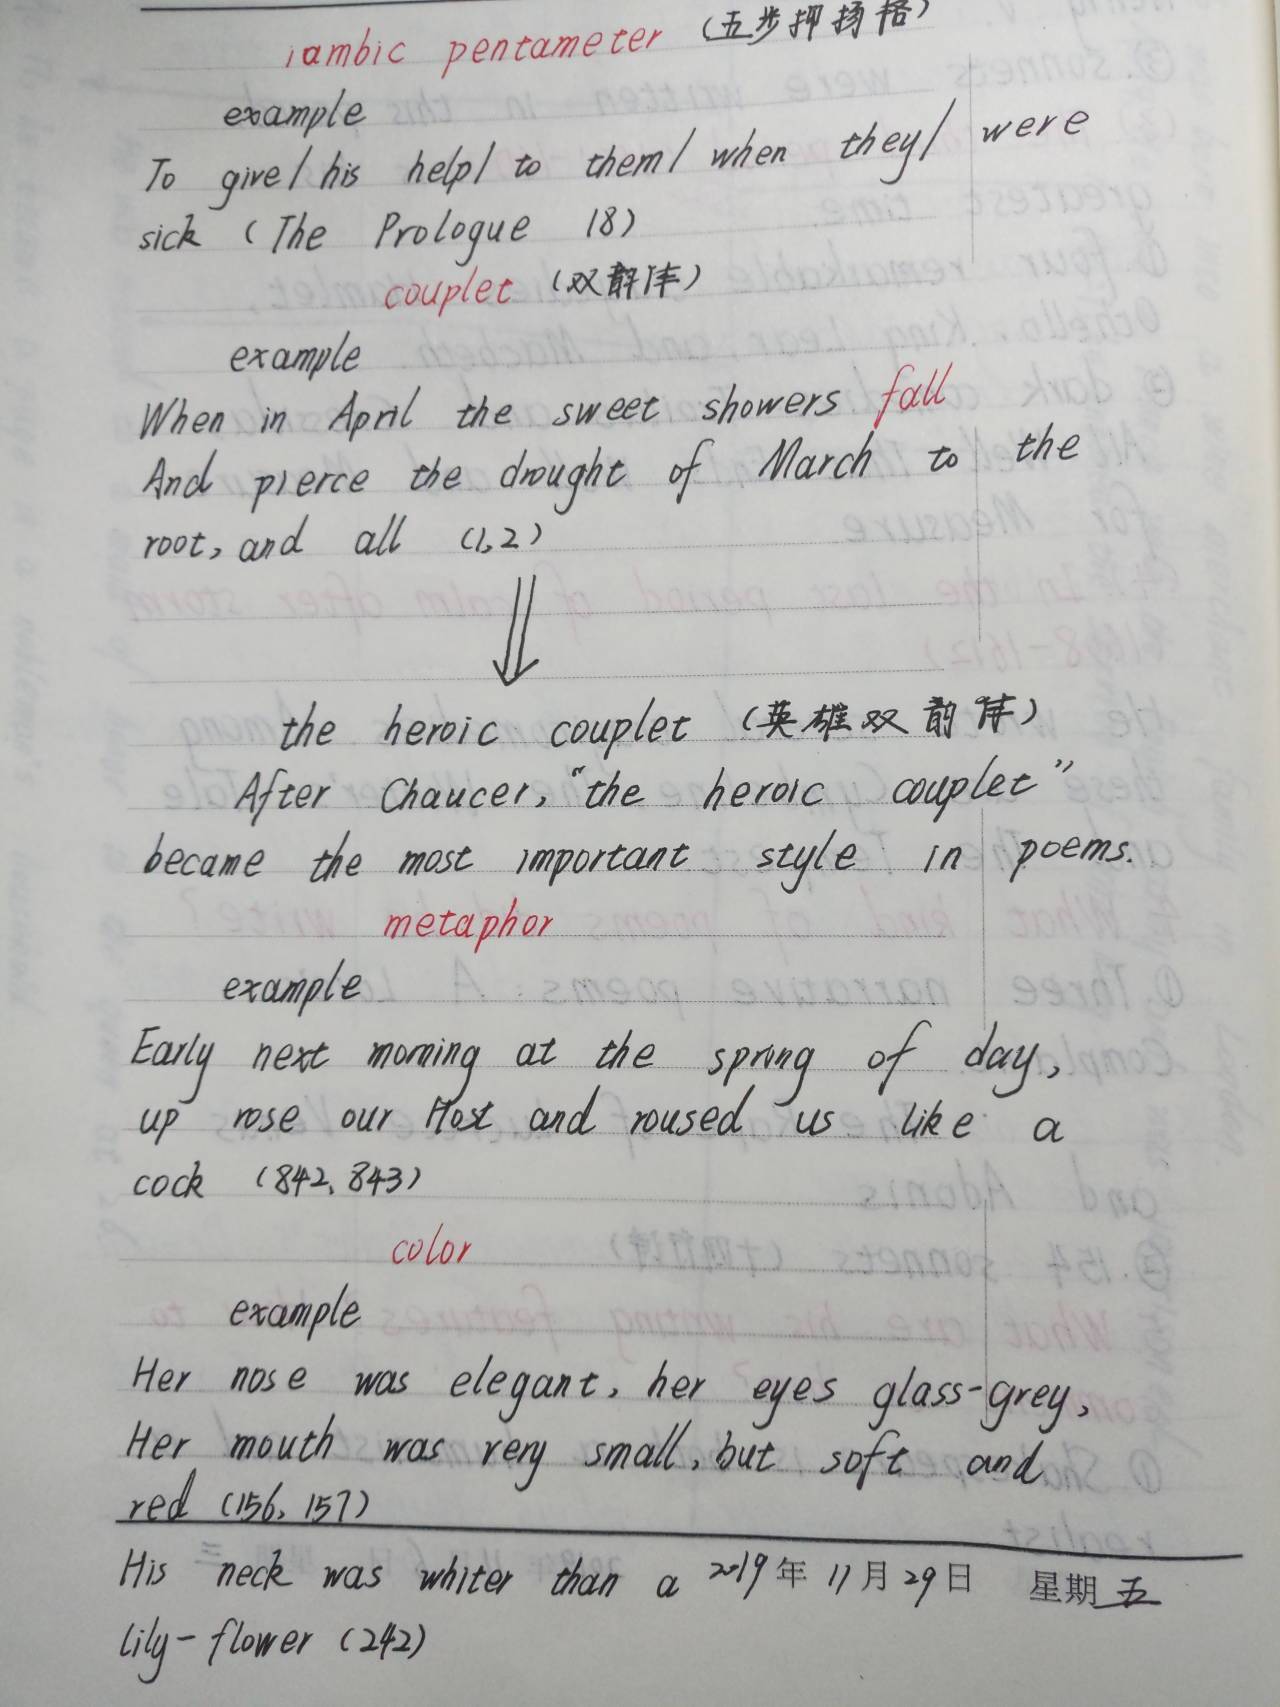 iambic pentameter (五步抑扬格)
example
To give/ his help/ to them/ when they/ were
sick (The Prologue 18)
couplet (双韵体)
example
When in April the sweet showers fall
And pierce the drought of March to the
root, and all (1,2)
the heroic couplet (英雄双韵体)
After Chaucer, "the heroic couplet"
became the most important style in poems.
metaphor
example
Early next morning at the spring of day,
up rose our Host and roused us like a
cock (842, 843)
color
example
Her nose was elegant, her eyes glass-grey,
Her mouth was very small, but soft and
red (156, 157)
His neck was whiter than a 2019年 11月 29日 星期 五
lily-flower (242)